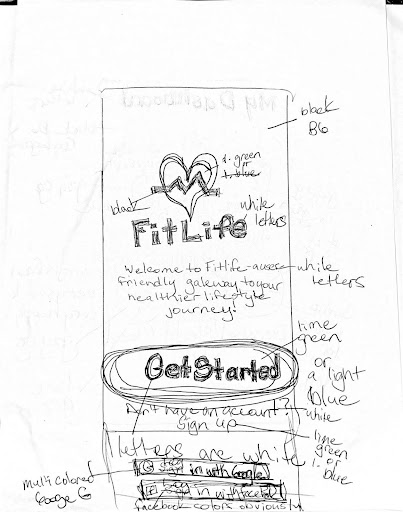 My Dashboard
black
BG
l. green
or
l. blue
black
white
letters
FitLife
Welcome to Fitlife-a user-
friendly gateway to your
healthier lifestyle
journey!
white
letters
lime
green
or
a light
blue
Get Started
Don't have an account?
white
Sign up
lime
green
or
l. blue
letters are white
multi colored
Google G
G Sign in with Google
f Sign in with
facebook colors obviously